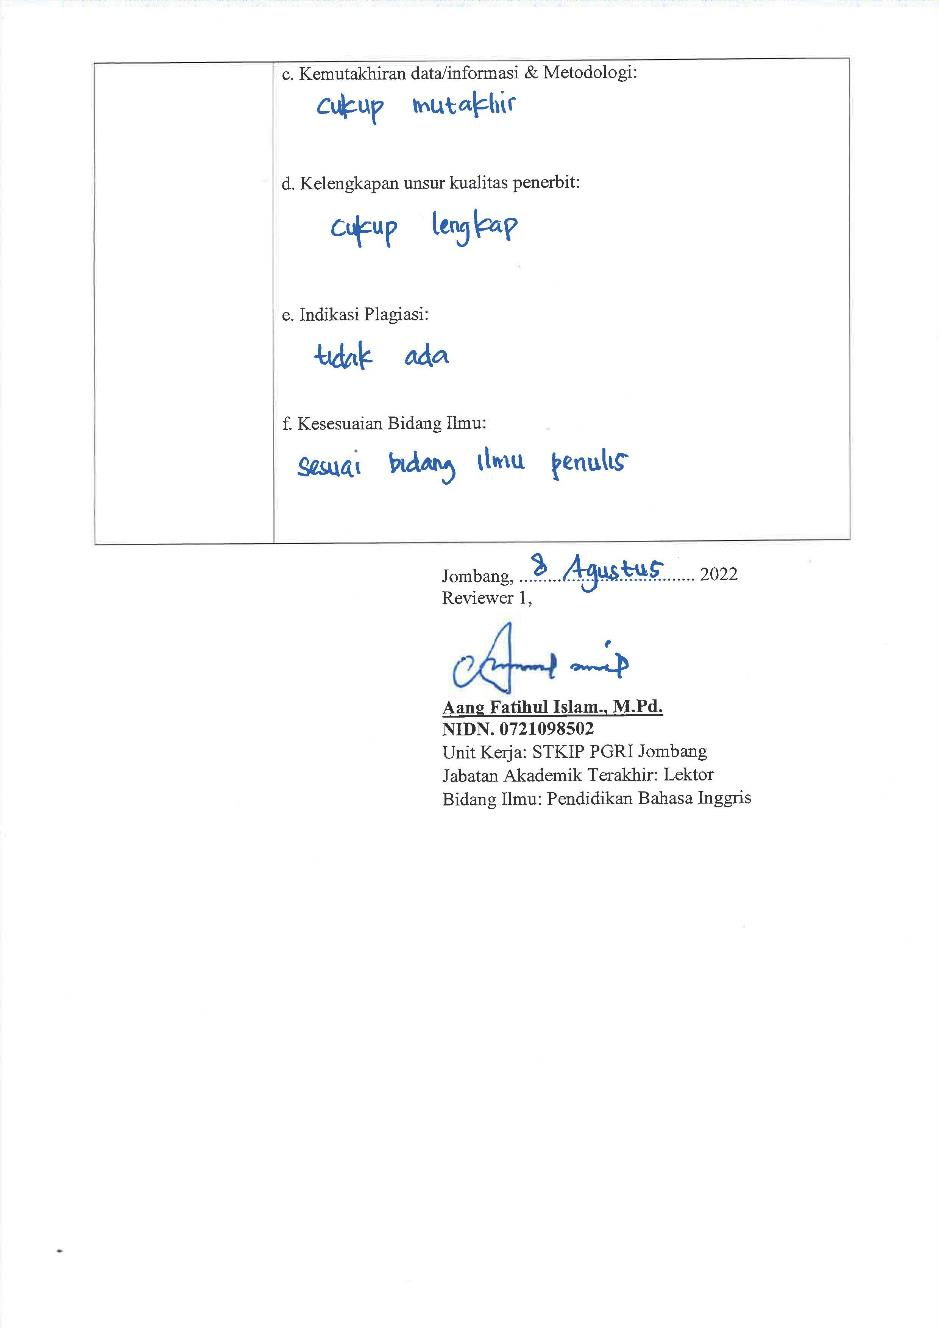 c. Kemutakhiran data/informasi & Metodologi:
cukup mutakhir
d. Kelengkapan unsur kualitas penerbit:
cukup lengkap
e. Indikasi Plagiasi:
tidak ada
f. Kesesuaian Bidang Ilmu:
sesuai bidang ilmu penulis
Jombang, ..8 Agustus.. 2022
Reviewer 1,
Aang Fatihul Islam., M.Pd.
NIDN. 0721098502
Unit Kerja: STKIP PGRI Jombang
Jabatan Akademik Terakhir: Lektor
Bidang Ilmu: Pendidikan Bahasa Inggris